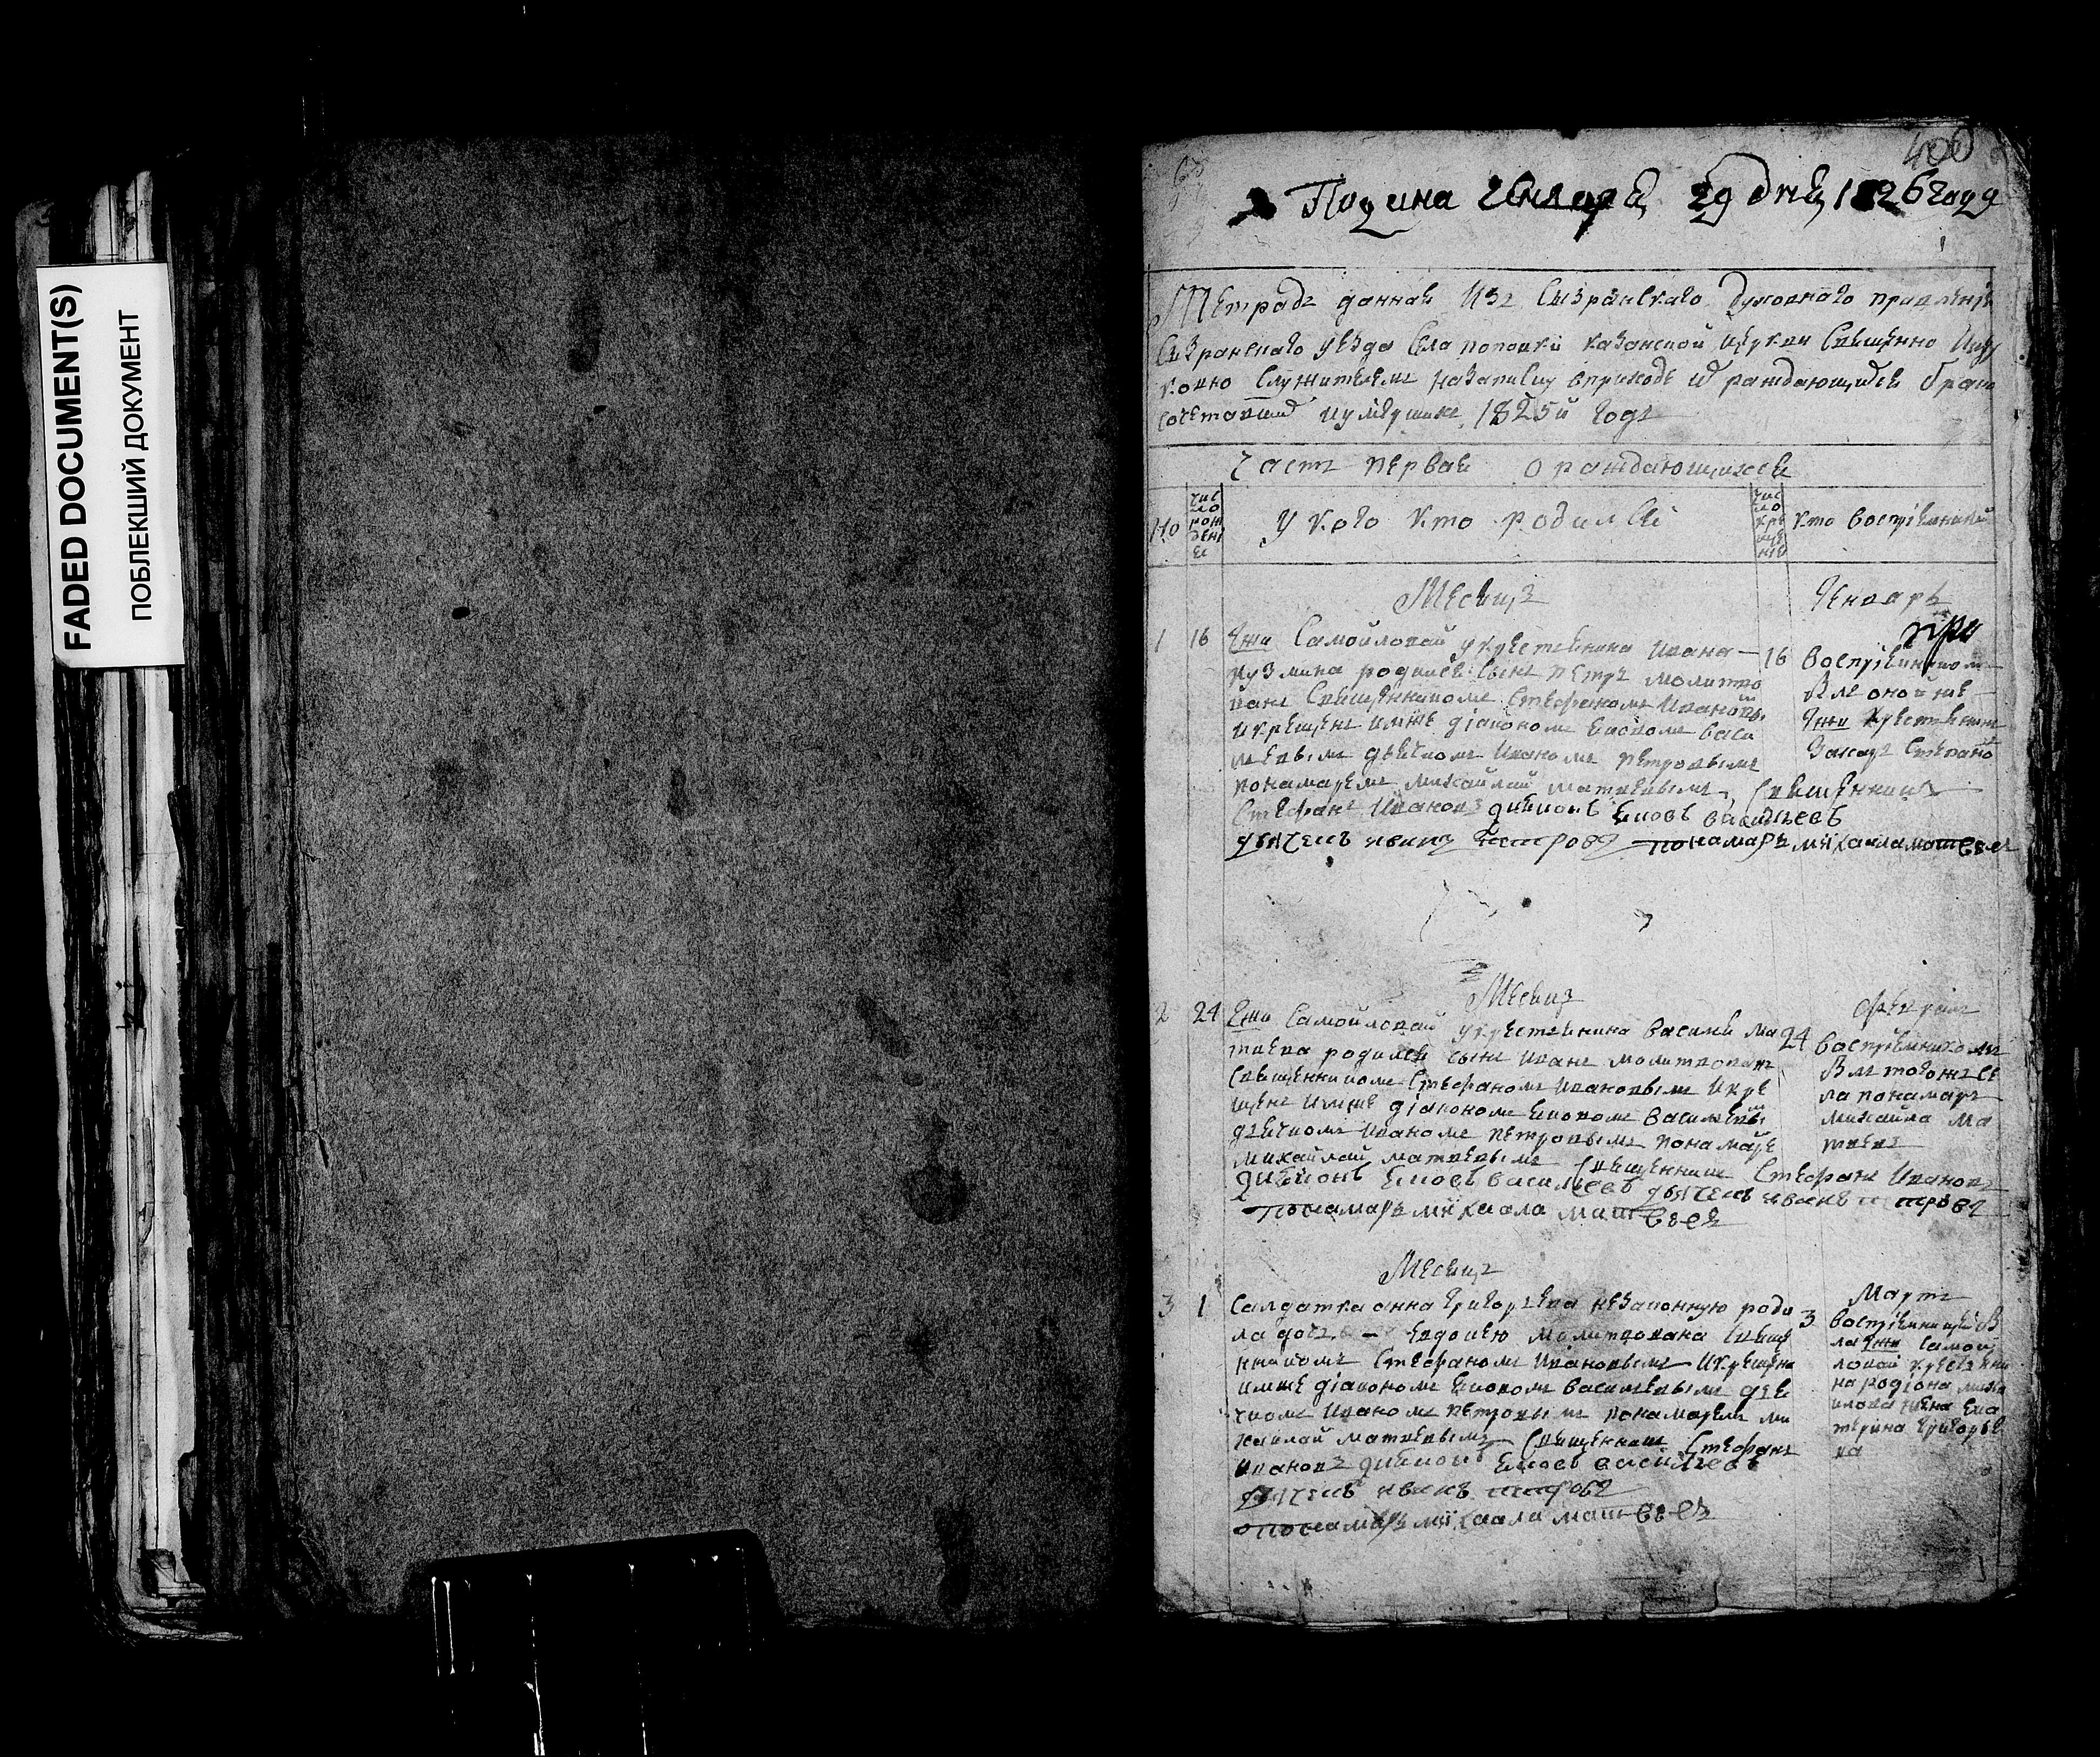 FADED DOCUMENT(S)
ПОБЛЕКШИЙ ДОКУМЕНТ
400
генваря 29 дня 1826 году
Тетрадь данная изъ Сызранскаго духовнаго правленія
Сызранскаго уезда села поповки казанской церкви священно цер
ковно служителемъ на записку в приходе о раждающихся брако
сочетавших и умершихъ 1825й годъ
Часть первая о раждающихся
Но
число рожденіе
у кого кто родился
число крещенія
кто воспріемники
Месяцъ
Генварь
1 16
Ечи Самойловай у крестьянина ивана
кузмина родился сынъ петръ молитво
ванъ священникомъ стефаномъ ивановым
и крещенъ имже діакономъ яковомъ васи
льевымъ дьячкомъ иваномъ петровымъ
понамаремъ михайлай матвевымъ священникъ
Стефанъ ивановъ диаконъ яковъ васильевъ
дьячекъ иванъ петровъ понамарь михаила матвеевъ
16 воспріемником
былъ оной же
крестьянинъ
захаръ степано
Месяцъ
2 24
Самойловай у крестьянина василья ма
твева родился сынъ иванъ молитвованъ
священникомъ стефаномъ ивановымъ и кре
щенъ имже діакономъ яковомъ васильевым
дьячкомъ иваномъ петровымъ понамаре
михайлай матвевымъ священникъ Стефанъ ивановъ
диаконъ яковъ васильевъ дьячекъ иванъ петровъ
понамарь михаила матвеевъ
24 воспріемникомъ
былъ тогожъ се
ла понамарь
михайла ма
твевъ
Месяцъ
Мартъ
3 1
Салдатка анна григорьева незаконную роди
ла дочь евдокею молитвована свяще
нникомъ стефаномъ ивановымъ и крещена
имже діакономъ яковомъ васильевымъ дья
чкомъ иваномъ петровымъ понамаремъ ми
хайлай матвевымъ священникъ Стефанъ
ивановъ диаконъ яковъ васильевъ
дьячекъ иванъ петровъ
понамарь михаила матвеевъ
3 воспріемницей б
ла самой
ловай крестьяни
на родіона
жена ека
терина григорье
ва